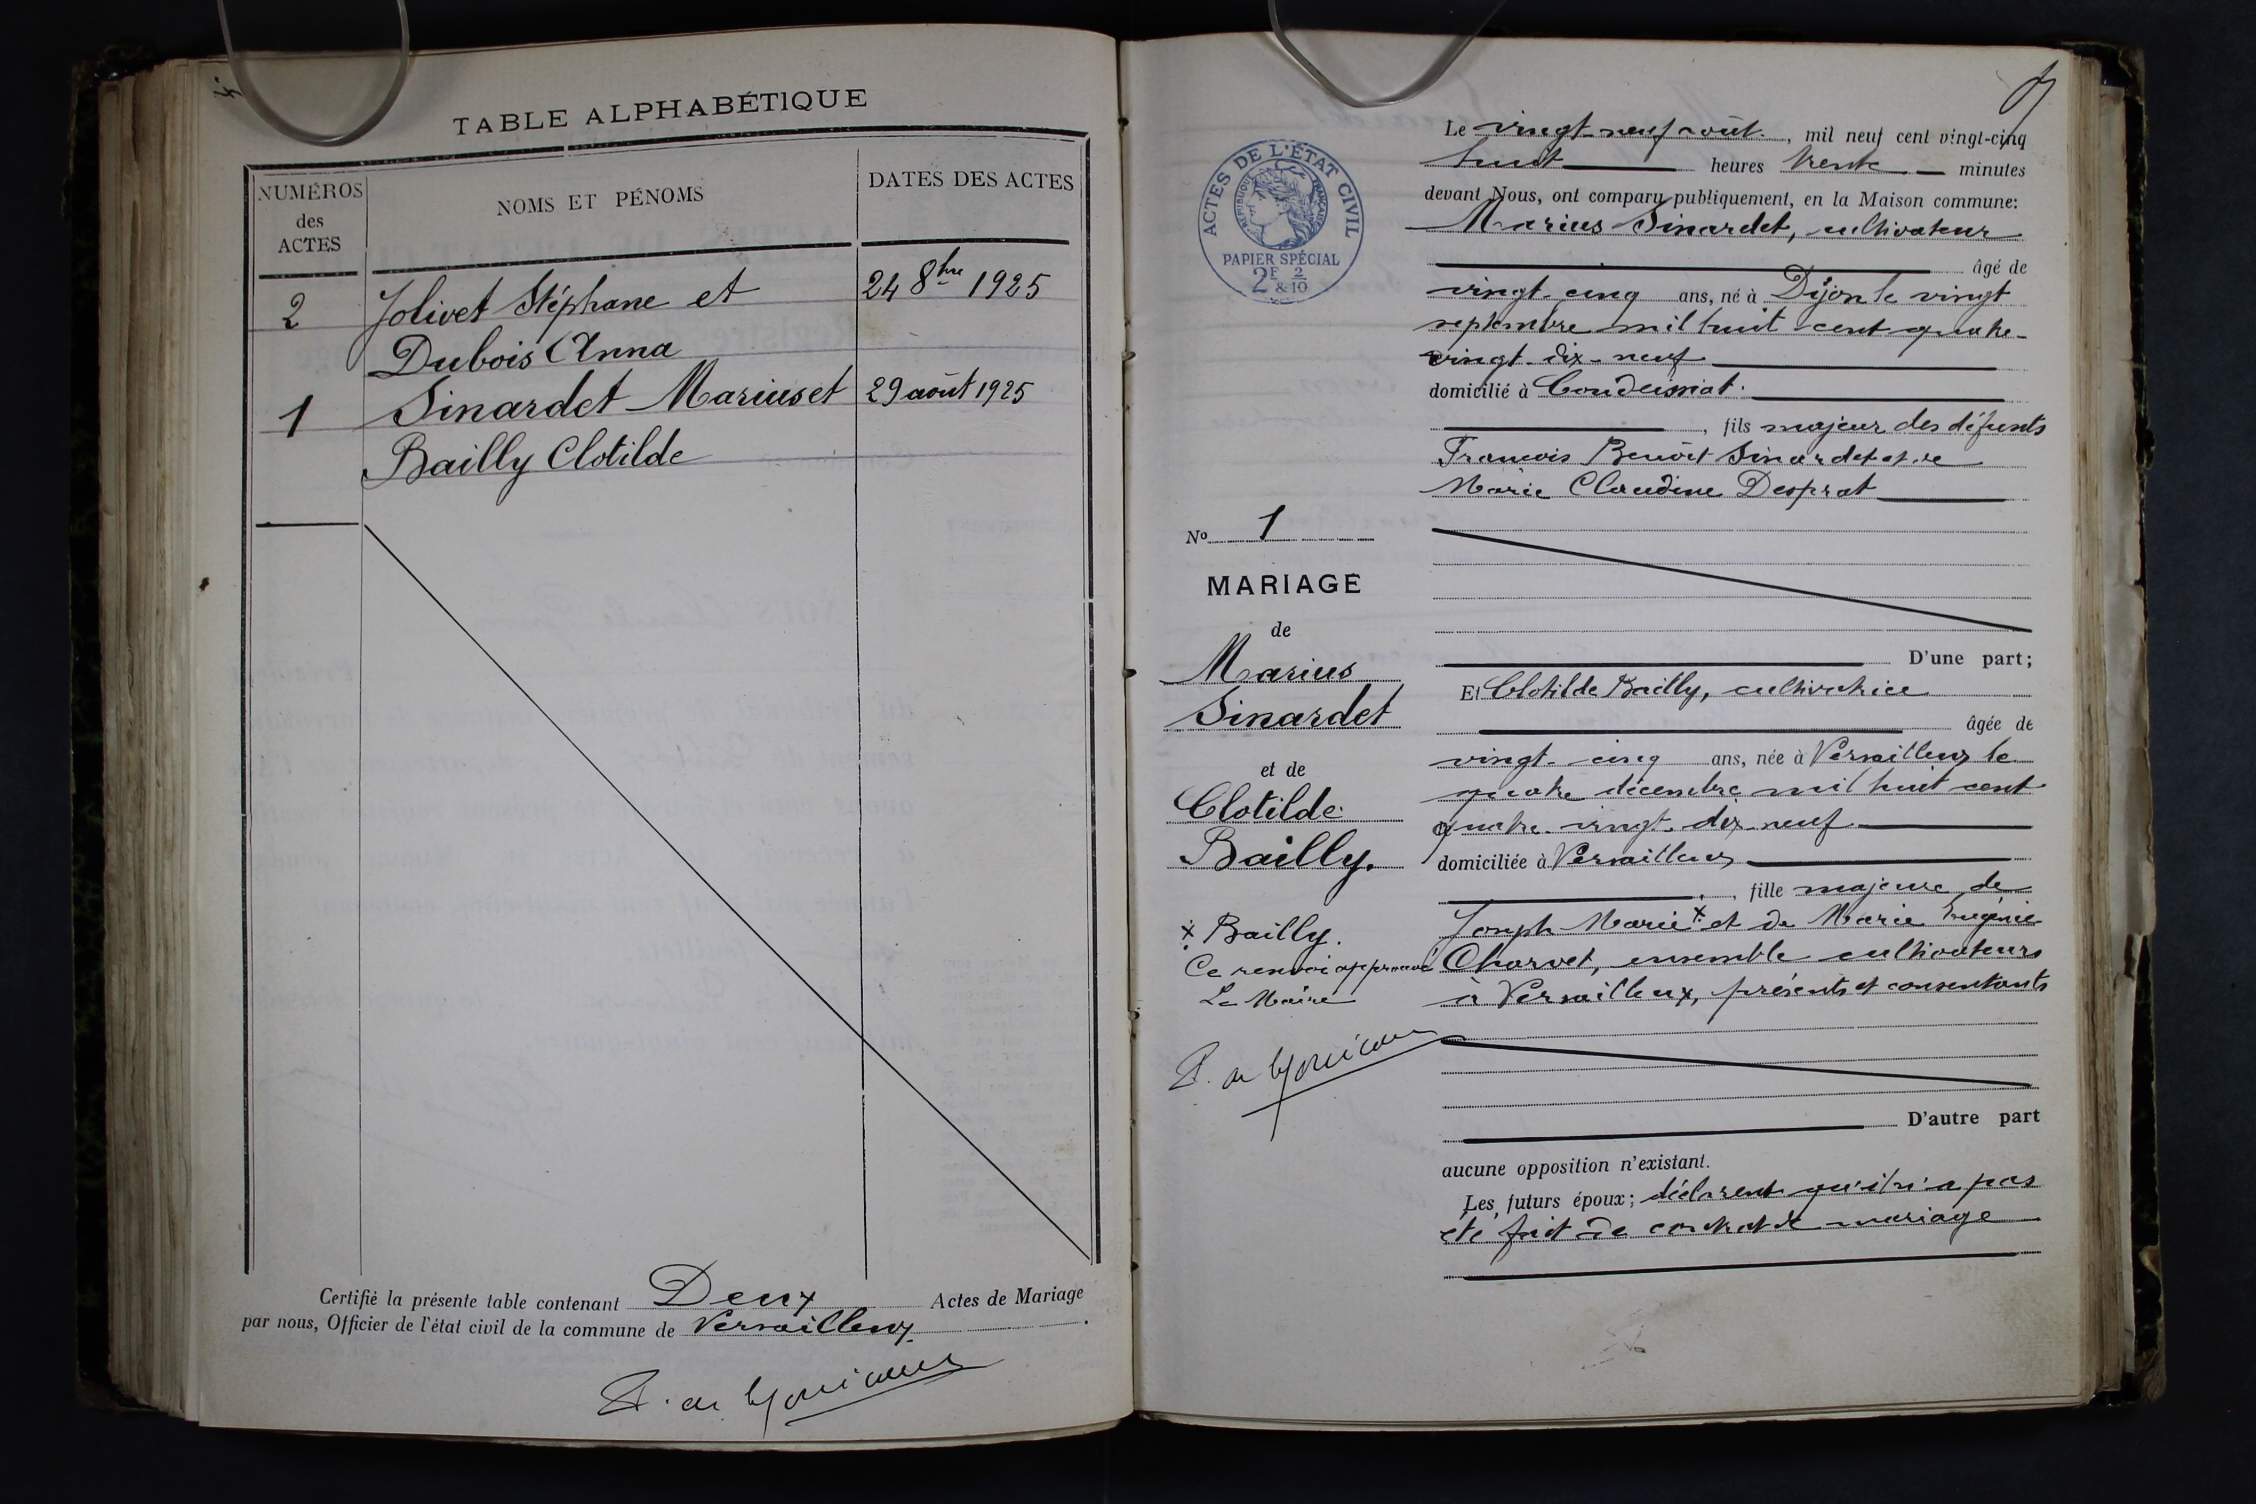 TABLE ALPHABÉTIQUE
NUMÉROS
des
ACTES
NOMS ET PÉNOMS
DATES DES ACTES
2 Jolivet Stéphane et 24 8bre 1925
Dubois Anna
1 Sinardet Marius et 29 août 1925
Bailly Clotilde
Certifié la présente table contenant Deux Actes de Mariage
par nous, Officier de l'état civil de la commune de Versailleux.
ACTES DE L'ÉTAT CIVIL
RÉPUBLIQUE FRANÇAISE
PAPIER SPÉCIAL
2F & 2/10
No 1
MARIAGE
de
Marius
Sinardet
et de
Clotilde
Bailly.
x Bailly.
Ce renvoi approuvé
Le Maire
Le vingt-neuf août, mil neuf cent vingt-cinq
huit heures trente minutes
devant Nous, ont comparu publiquement, en la Maison commune:
Marius Sinardet, cultivateur
âgé de
vingt-cinq ans, né à Dijon le vingt
septembre mil huit cent quatre-
vingt-dix-neuf
domicilié à Condeissiat.
, fils majeur des défunts
François Benoît Sinardet et de
Marie Claudine Desprat
D'une part;
Et Clotilde Bailly, cultivatrice
âgée de
vingt-cinq ans, née à Versailleux le
quatre décembre mil huit cent
quatre-vingt-dix-neuf
domiciliée à Versailleux
, fille majeure de
Joseph Marie x et de Marie Eugénie
Charvet, ensemble cultivateurs
à Versailleux, présents et consentants
D'autre part
aucune opposition n'existant.
Les futurs époux; déclarent qu'il n'a pas
été fait de contrat de mariage